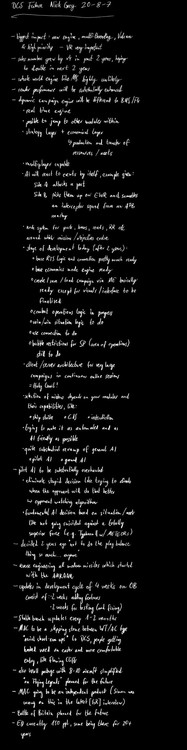 DCS Future Nick Grey 20-8-7
- biggest impact - new engine, multi-threading, Vulcan
is high priority - VR very important
- sales number grew by x4 in past 2 years, hoping
to double in next 2 years
- whole world engine like MS highly unlikely
- render performance will be substantially enhanced
- dynamic campaign engine will be different to BMS/F4
• real time engine
• possible to jump to other modules within
• strategy layer + economical layer
↳ production and transfer of
resources / units
• multiplayer capable
• AI will react to events by itself, example given:
Side A attacks a post
Side B picks them up on EWR and scrambles
an interceptor squad from an AFB
nearby
• node system for posts, bases, roads, RR etc
around which missions / objectives evolve
• stages of development today (after 2 years):
• base RTS logic and connection pretty much ready
• base economics model engine ready
• create / save / load campaign via ME basically
ready except for visuals / interface to be
finalised
• combat operations logic in progress
• win/win situation logic to do
• ME connection to do
• possible restrictions for SP (area of operations)
still to do
• client/server architecture for very large
campaigns in continuous online sessions
= truly cool!
• selection of missions depends on your module and
their capabilities, like:
• ship strike • CAS • interdiction
• trying to make it as automated and as
AI friendly as possible
• quite substantial revamp of general AI
• pilot AI • ground AI
- pilot AI to be substantially enhanced
• eliminate stupid decisions like trying to climb
when the opponent will do that better
↳ opponent watching algorithms
• fundamental AI decision based on situation / needs
like not going suicidal against a totally
superior force
- decided 2 years ago not to do the play balance
thing so much...
- reverse engineering of modern missiles which started
with the AMRAAM
- updates in development cycle of 4 weeks on OB
consist of - 2 weeks adding features
- 2 weeks for testing (and fixing)
- Stable branch updates every 1-2 months
- MAC to be a stepping stone between WT/AC type
"arcade shoot em ups" to DCS, people getting
baked need an easier and more comfortable
entry, like Flaming Cliffs
- also small package with 8-10 aircraft simplified
in "Flying Legends" planned for the future
- MAC going to be an independent product (Simon was
wrong on this in the latest interview)
- Battle of Britain planned for the future
- ED currently 150 ppl, some being there for 20+
years